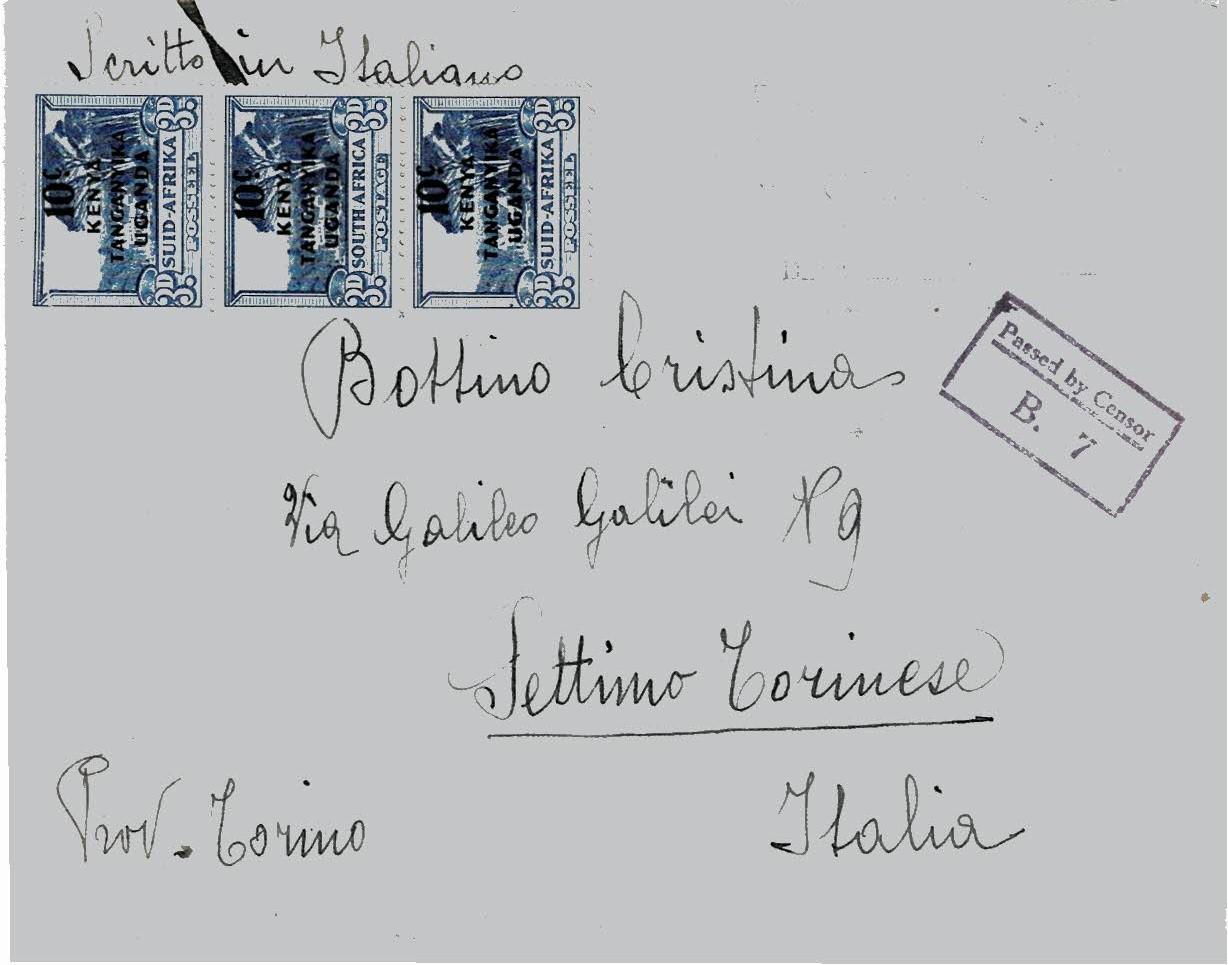 Scritto in Italiano
10c KENYA TANGANYIKA UGANDA SUID-AFRIKA POSSEEL 3D 3D
10c KENYA TANGANYIKA UGANDA SOUTH AFRICA POSTAGE 3D 3D
10c KENYA TANGANYIKA UGANDA SUID-AFRIKA POSSEEL 3D 3D
Bottino Cristina
Passed by Censor
B. 7
Via Galileo Galilei N 9
Settimo Torinese
Prov. Torino
Italia